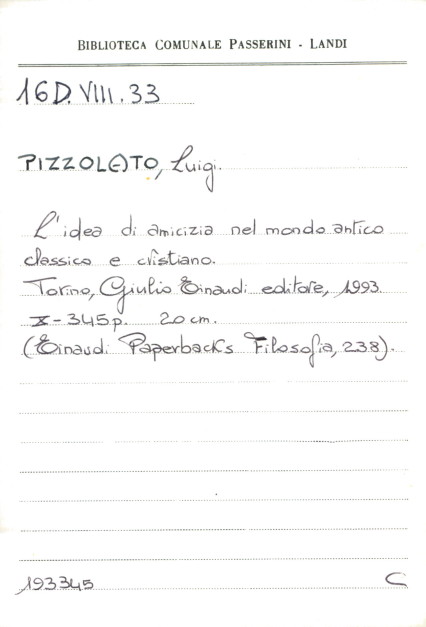 BIBLIOTECA COMUNALE PASSERINI - LANDI
16D.VIII.33
PIZZOLATO, Luigi.
L'idea di amicizia nel mondo antico
classico e cristiano.
Torino, Giulio Einaudi editore, 1993.
X-345p. 20 cm.
(Einaudi Paperbacks Filosofia, 238).
193345 C